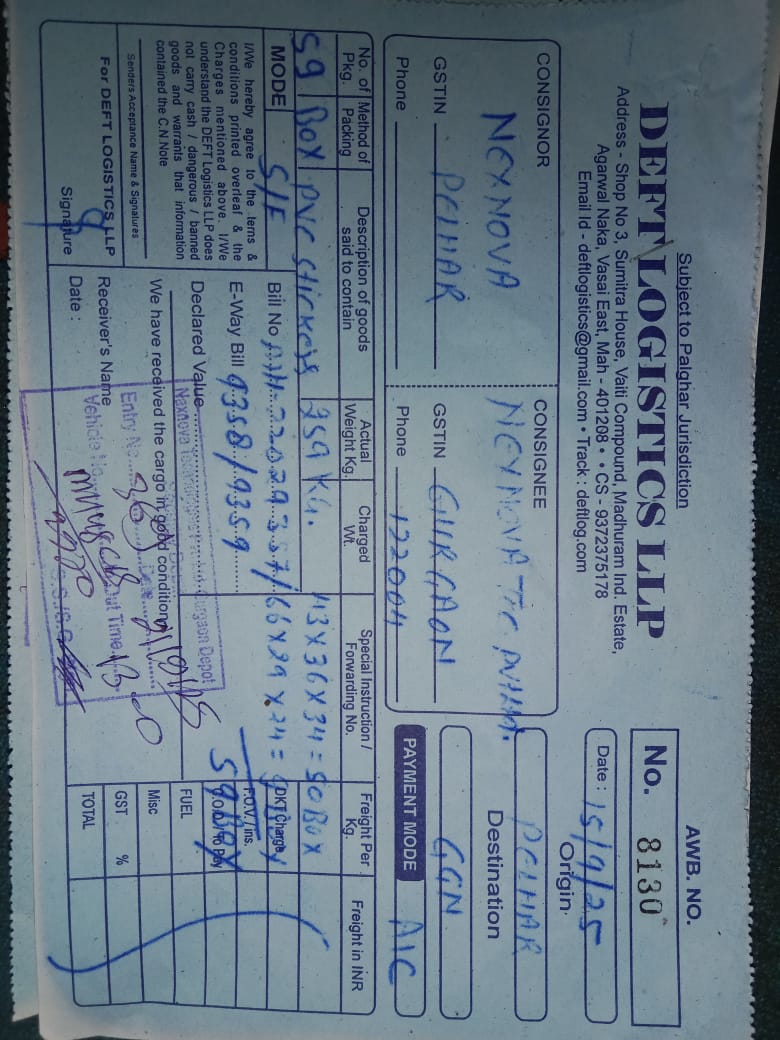 Subject to Palghar Jurisdiction
DEFT LOGISTICS LLP
Address - Shop No 3, Sumitra House, Vaiti Compound, Madhuram Ind. Estate,
Agarwal Naka, Vasai East, Mah - 401208 • • CS - 9372375178
Email Id - deftlogistics@gmail.com • Track : deftlog.com
AWB. NO.
No. 8130
Date : 15/9/25
CONSIGNOR
NEXNOVA
PELHAR
GSTIN
Phone
CONSIGNEE
NEXNOVA
GSTIN GURGAON
Phone 122004
Origin
PELHAR
Destination
GGN
PAYMENT MODE A/C
No. of Pkg.
Method of Packing
Description of goods said to contain
Actual Weight Kg.
Charged Wt.
Special Instruction / Forwarding No.
Freight Per Kg.
Freight in INR
59 BOX PVC Stickers 359 KG. 43X36X34 = 50 BOX
MODE S/F
Bill No
66X29X24 =
E-Way Bill 9358/9359
59 BOX
Declared Value
DKT Charge
F.O.V. / ins.
FUEL
Misc
GST %
TOTAL
I/We hereby agree to the terns &
conditions printed overleaf & the
Charges mentioned above. I/We
understand the DEFT Logistics LLP does
not carry cash / dangerous / banned
goods and warrants that information
contained the C.N Note
Senders Acceptance Name & Signatures
For DEFT LOGISTICS LLP
Signature
We have received the cargo in good condition
Receiver's Name
Date :
Gurgaon Depot
Entry No.
Vehicle No.
Out Time